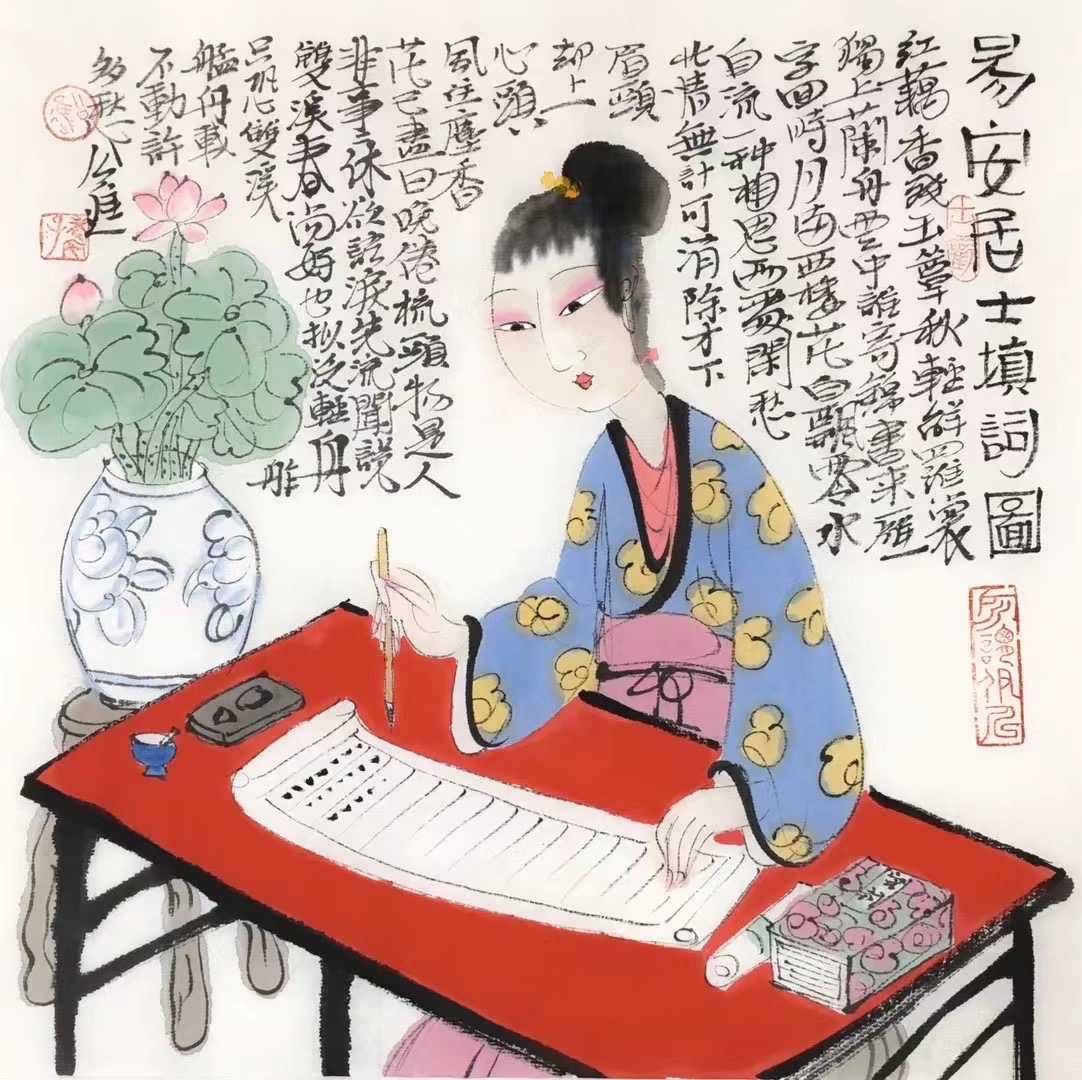 易安居士填詞圖
紅藕香殘玉簟秋輕解羅裳
獨上蘭舟雲中誰寄錦書來雁
字回時月滿西樓花自飄零水
自流一種相思兩處閑愁
此情無計可消除才下
眉頭
却上
心頭
風住塵香
花已盡日晚倦梳頭物是人
非事事休欲語淚先流聞說
雙溪春尚好也拟泛輕舟
只恐雙溪舴
艋舟載
不動許
多愁